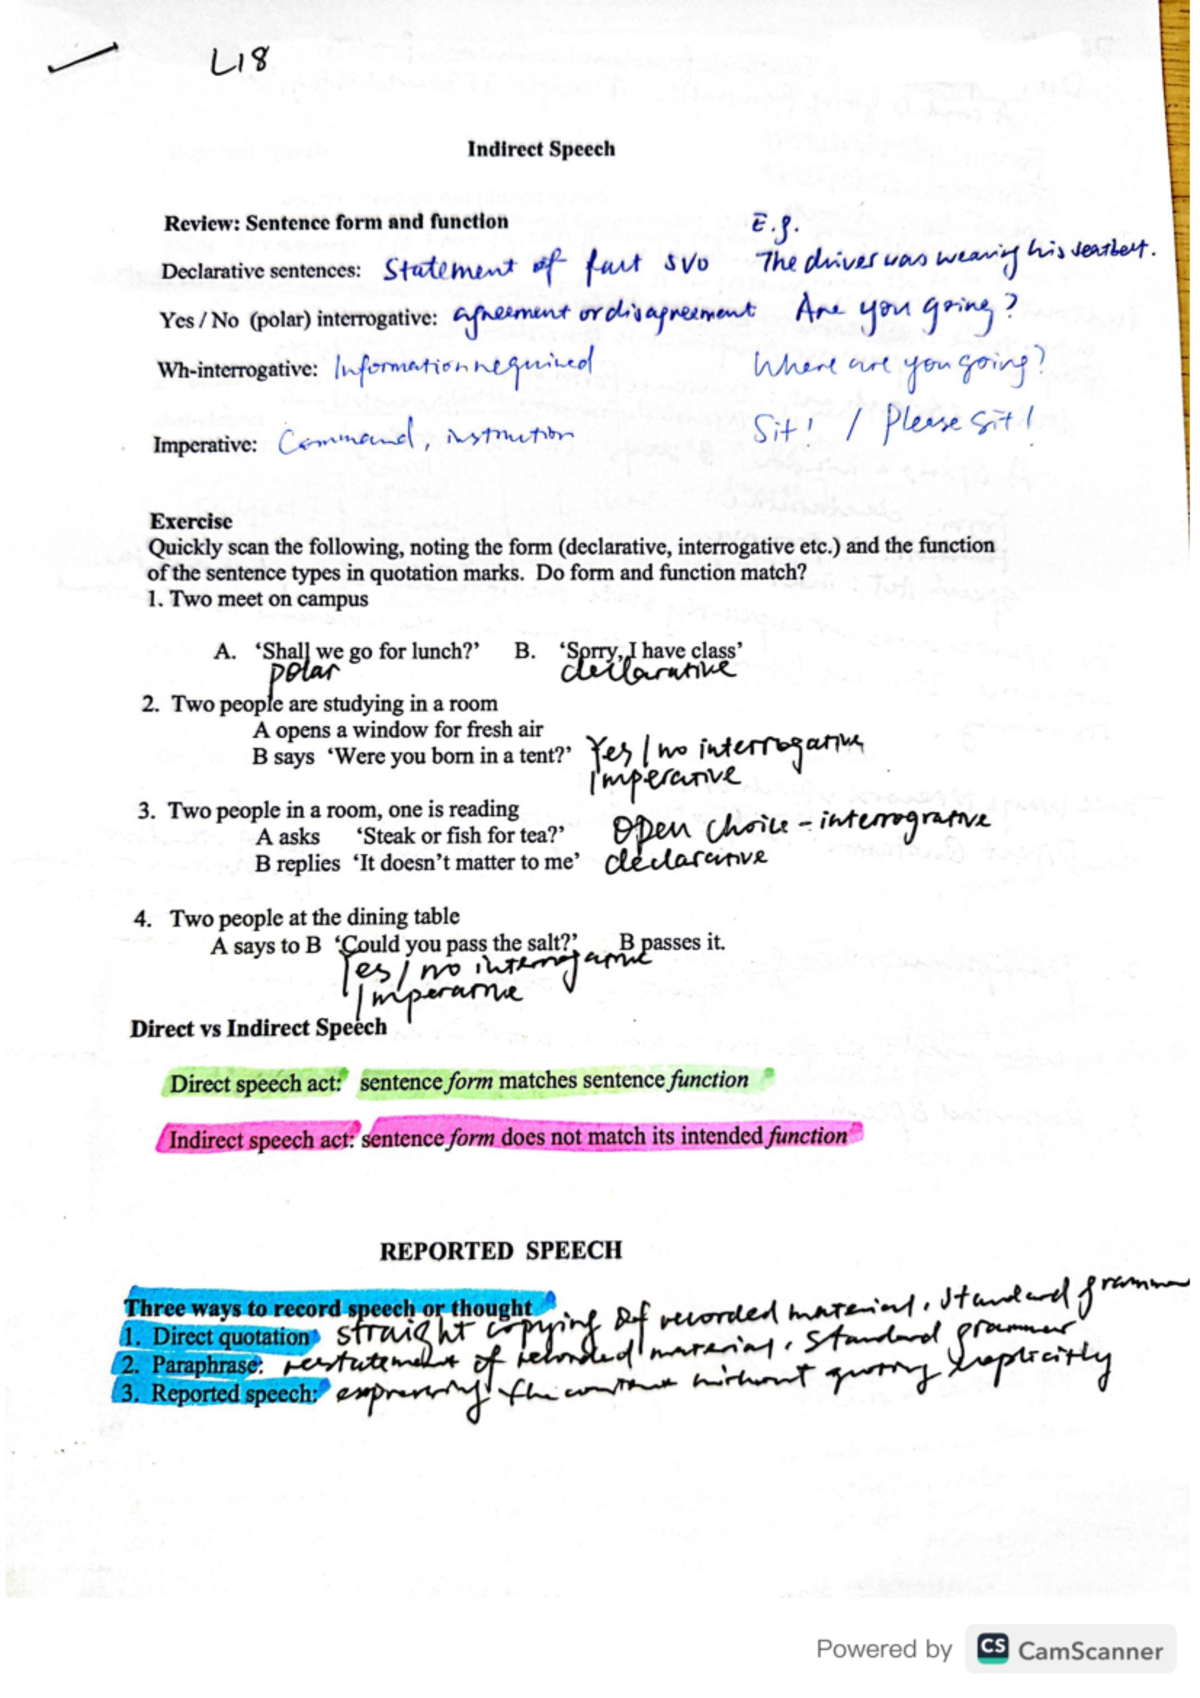 L18
Indirect Speech
Review: Sentence form and function E.g.
Declarative sentences: Statement of fact SVO The driver was wearing his seatbelt.
Yes / No (polar) interrogative: agreement or disagreement Are you going?
Wh-interrogative: Information required Where are you going?
Imperative: Command, instruction Sit! / Please sit!
Exercise
Quickly scan the following, noting the form (declarative, interrogative etc.) and the function
of the sentence types in quotation marks. Do form and function match?
1. Two meet on campus
A. ‘Shall we go for lunch?’ B. ‘Sorry, I have class’
polar declarative
2. Two people are studying in a room
A opens a window for fresh air
B says ‘Were you born in a tent?’ Yes / no interrogative
Imperative
3. Two people in a room, one is reading
A asks ‘Steak or fish for tea?’ Open choice - interrogrative
B replies ‘It doesn’t matter to me’ declarative
4. Two people at the dining table
A says to B ‘Could you pass the salt?’ B passes it.
Yes / no interrogative
Imperative
Direct vs Indirect Speech
Direct speech act: sentence form matches sentence function
Indirect speech act: sentence form does not match its intended function
REPORTED SPEECH
Three ways to record speech or thought
1. Direct quotation straight copying of recorded material, standard grammar
2. Paraphrase: restatement of recorded material, standard grammar
3. Reported speech: expressing the content without quoting explicitly
Powered by CS CamScanner